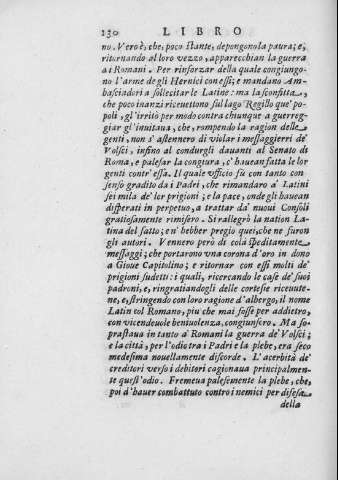 130 LIBRO
no. Vero è, che, poco stante, depongono la paura; e,
ritornando al loro vezzo, apparecchian la guerra
a i Romani. Per rinforzar della quale congiungo-
no l'arme de gli Hernici con essi; e mandano Am-
basciadori a sollecitar le Latine: ma la sconfitta,
che poco inanzi riceuettono sul lago Regillo que' po-
poli, gl'irritò per modo contra chiunque a guerreg-
giar gl'inuitaua, che, rompendo la ragion delle
genti, non s'astennero di violar i messaggierri de'
Volsci, insino al condurgli dauanti al Senato di
Roma, e palesar la congiura, c'haueau fatta le lor
genti contr'essa. Il quale vfficio fù con tanto con
senso gradito da i Padri, che rimandaro a' Latini
sei mila de' lor prigioni; e la pace, onde gli haueau
disperati in perpetuo, a trattar da' nuoui Consoli
gratiosamente rimisero. Si rallegrò la nation La-
tina del fatto; e n'hebber pregio quei, che ne furon
gli autori. Vennero però di colà speditamente
messaggi; che portarono vna corona d'oro in dono
a Gioue Capitolino; e ritornar con essi molti de'
prigioni sudetti: i quali, ricercando le case de' suoi
padroni, e, ringratiandogli delle cortesie riceuute-
ne, e, stringendo con loro ragione d'albergo, il nome
Latin col Romano, più che mai fosse per addietro,
con vicendeuole beniuolenza, congiunsero. Ma so-
prastaua in tanto a' Romani la guerra de' Volsci;
e la città, per l'odio tra i Padri e la plebe, era seco
medesima nouellamente discorde. L'acerbità de'
creditori verso i debitori cagionaua principalmen-
te quest'odio. Fremeua palesemente la plebe, che,
poi d'hauer combattuto contro i nemici per difesa
della